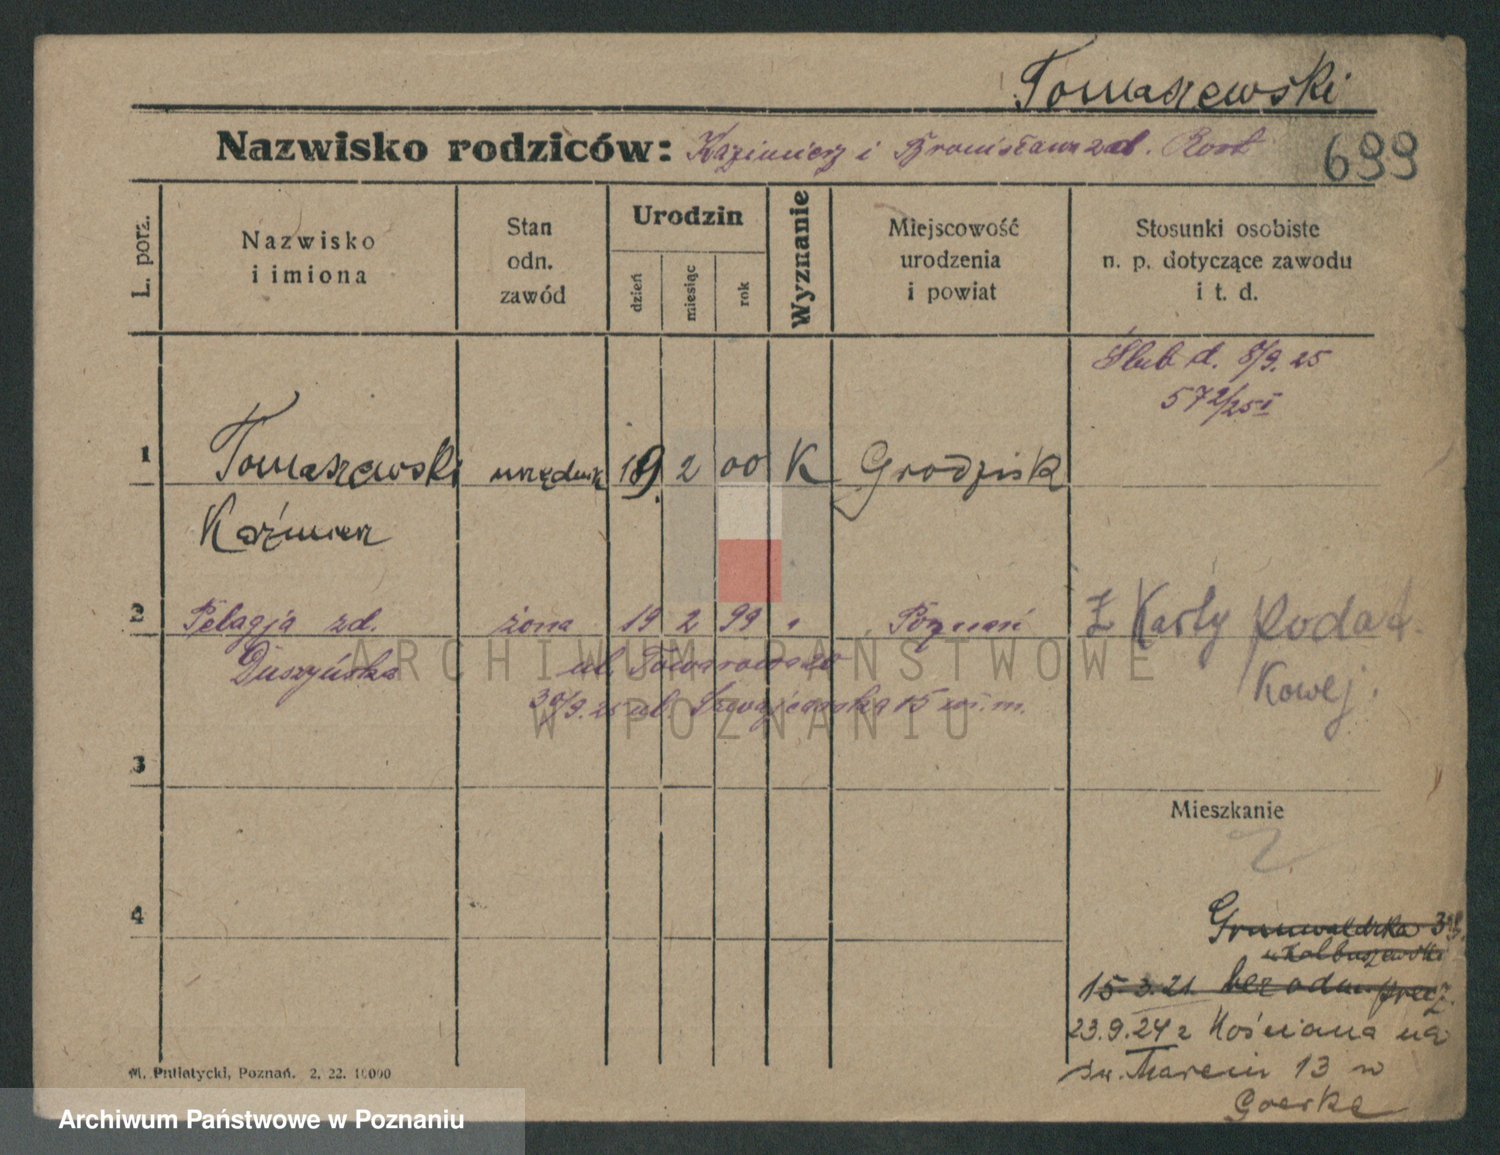 Tomaszewski
Nazwisko rodziców: Kazimierz i Bronisława zd. Rost
699
L. porz.
Nazwisko i imiona
Stan odn. zawód
Urodzin
dzień
miesiąc
rok
Wyznanie
Miejscowość urodzenia i powiat
Stosunki osobiste n. p. dotyczące zawodu i t. d.
Ślub d. 8/9. 25
572/25 I
1 Tomaszewski urzędnik 19. 2 00 K Grodzisk
Kaźmierz
2 Pelagja zd. żona 19 2 99 " Poznań Z Karty Podat
Duszyńska ul. Towarowa 20
kowej.
30/9. 25 ul. Szwajcarska 15 wł. m.
ARCHIWUM PAŃSTWOWE
W POZNANIU
3
Mieszkanie
4
Grunwaldzka
15.3.21 bez odm. precz.
23.9.24 z Kościana na
św. Marcin 13 w
Goerke
M. Putiatycki, Poznań. 2. 22. 10000
Archiwum Państwowe w Poznaniu